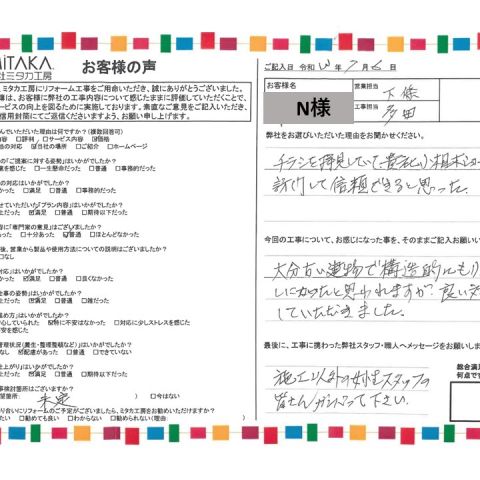 MiTAKA
社ミタカ工房
お客様の声
ミタカ工房にリフォーム工事をご用命いただき、誠にありがとうございました。
様は、お客様に弊社の工事内容について感じたままに評価していただくことで、
ービスの向上を図るために実施しております。率直なご意見をご記入いただき、
信用封筒にてご返信くださいますよう、お願い申し上げます。
んでいただいた理由は何ですか?(複数回答可)
内容 □評判 □サービス内容 ☑価格
当の対応 ☑当社の場所 □ご紹介 □ホームページ
の「ご提案に対する姿勢」はいかがでしたか?
に思った ☑一生懸命だった □普通 □事務的だった
の対応はいかがでしたか?
かった ☑満足 □普通 □事務的だった
せていただいた「プラン内容」はいかがでしたか?
上だった ☑満足 □普通 □期待以下だった
容に「専門家の意見」はございましたか?
あった □十分あった ☑普通 □ほとんどなかった
後、営業から製品や使用方法についての説明はございましたか?
□なし
対応」はいかがでしたか?
だった ☑満足 □普通 □良くなかった
仕事の姿勢」はいかがでしたか?
上だった ☑満足 □普通 □雑だった
進め方」はいかがでしたか?
心していられた ☑特に不安はなかった □対応に少しストレスを感じた
不安を感じた
管理状況(養生・整理整頓など)」はいかがでしたか?
なし ☑配慮があった □普通 □できていない
仕上がり」はいかがでしたか?
上だった ☑満足 □普通 □期待以下だった
事検討箇所はございますか?
望箇所: 未定 ) □今はない
り合いにリフォームのご予定がございましたら、ミタカ工房をお勧めいただけますか?
たい □勧めても良い □わからない □勧められない(理由 )
ご記入日 令和 年 7月 6日
お客様名
N様
営業担当 下條
工事担当 多田
弊社をお選びいただいた理由をお聞かせください。
チラシを拝見していた貴社
訪問して信頼できると思った。
今回の工事について、お感じになった事を、そのままご記入お願い
大分古い建物で構造的にも
しにくかったと思われますが?良い
していただきました。
最後に、工事に携わった弊社スタッフ・職人へメッセージをお願いしま
施工以外の スタッフの
皆さん!がんばって下さい.
総合満足
何点です